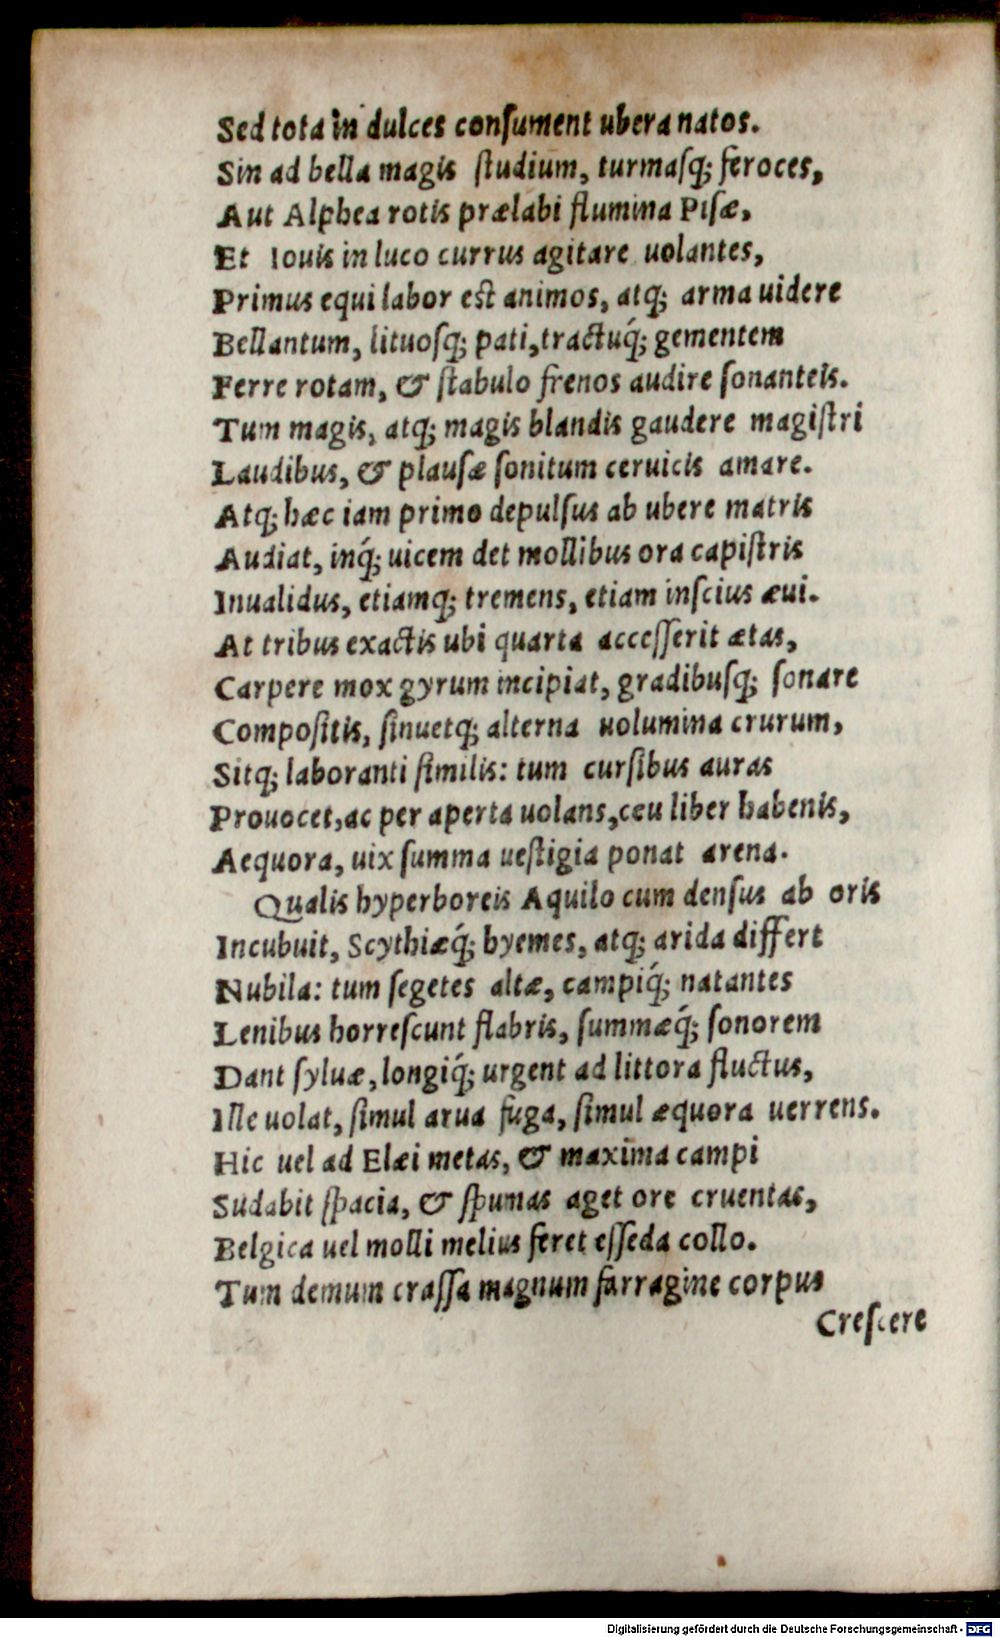 Sed tota in dulces conſument ubera natos.
Sin ad bella magis ſtudium, turmasq; feroces,
Aut Alphea rotis prælabi flumina Piſæ,
Et Iouis in luco currus agitare uolantes,
Primus equi labor est animos, atq; arma uidere
Bellantum, lituoſq; pati, tractuq́; gementem
Ferre rotam, & ſtabulo frenos audire ſonanteis.
Tum magis, atq; magis blandis gaudere magiſtri
Laudibus, & plauſæ ſonitum ceruicis amare.
Atq; hæc iam primo depulſus ab ubere matris
Audiat, inq́; uicem det mollibus ora capiſtris
Inualidus, etiamq; tremens, etiam inſcius æui.
At tribus exactis ubi quarta acceſſerit ætas,
Carpere mox gyrum incipiat, gradibuſq; ſonare
Compoſitis, ſinuetq; alterna uolumina crurum,
Sitq; laboranti ſimilis: tum curſibus auras
Prouocet, ac per aperta uolans, ceu liber habenis,
Aequora, uix ſumma ueſtigia ponat arena.
Qualis hyperboreis Aquilo cum denſus ab oris
Incubuit, Scythiæq́; hyemes, atq; arida differt
Nubila: tum ſegetes altæ, campiq́; natantes
Lenibus horreſcunt flabris, ſummæq́; ſonorem
Dant ſyluæ, longiq́; urgent ad littora fluctus,
Ille uolat, ſimul arua fuga, ſimul æquora uerrens.
Hic uel ad Elæi metas, & maxima campi
Sudabit ſpacia, & ſpumas aget ore cruentas,
Belgica uel molli melius feret eſſeda collo.
Tum demum craſſa magnum farragine corpus
Creſcere
Digitalisierung gefördert durch die Deutsche Forschungsgemeinschaft - DFG